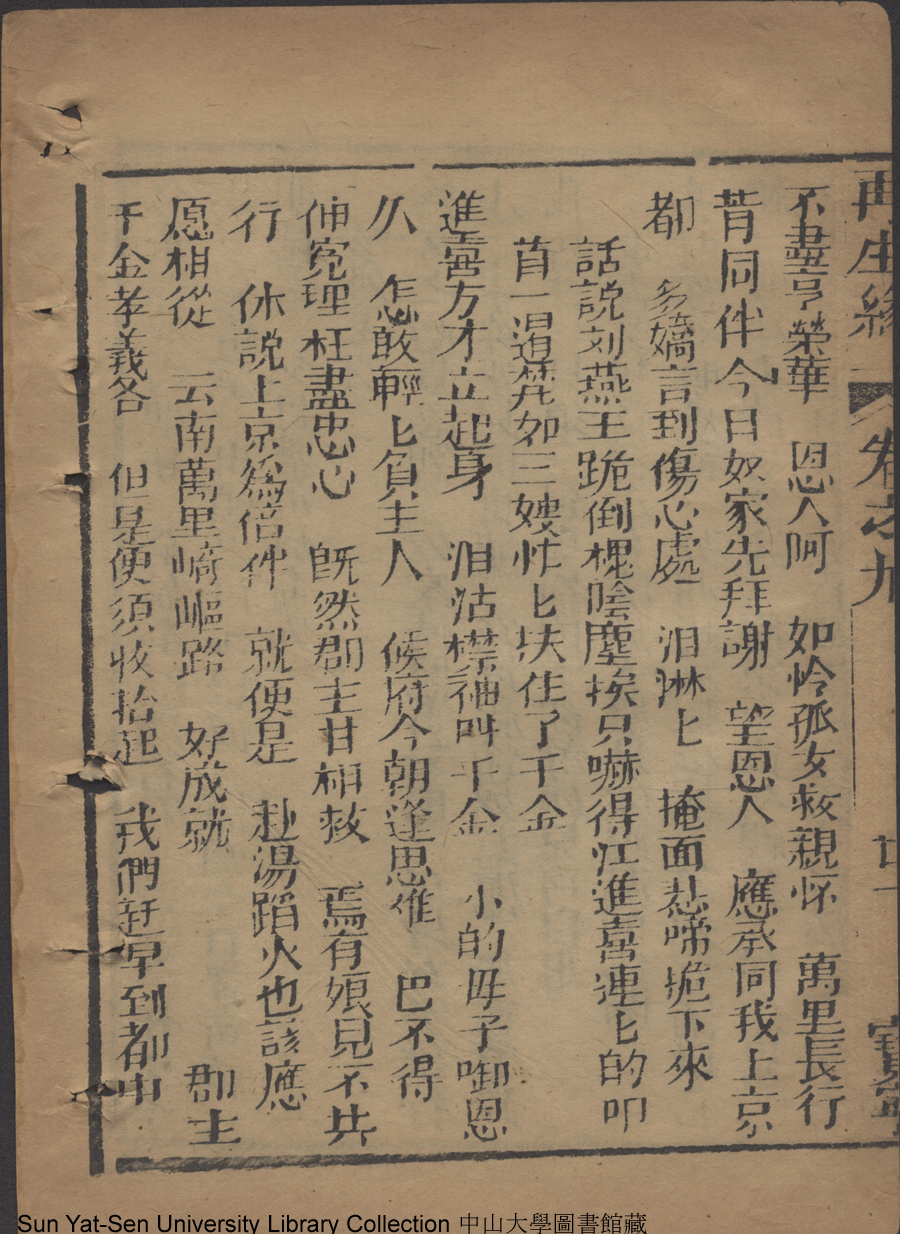 再生緣 卷之九 廿一 寶寧
不盡亨榮華 恩人呵 如怜孤女救親怀 萬里長行
昔同伴今日奴家先拜謝 望恩人 應承同我上京
都 多嬌言到傷心處 泪淋匕 掩面悲啼跪下來
話說刘燕王跪倒槐陰塵挨只嚇得江進喜連匕的叩
首一邉若如三嫂忙匕扶住了千金
進喜方才立起身 泪沽襟袖叫千金 小的毋子啣恩
久 怎敢輕匕負主人 候府今朝逢思难 巴不得
伸寃理枉盡忠心 旣然郡主甘相救 焉有娘見不共
行 休說上京為倍件 就便是 赴湯蹈火也該應
愿相從 云南萬里崎嶇路 好成就 郡主
千金孝義名 但是便須收拾起 我們赶早到都中
Sun Yat-Sen University Library Collection 中山大學圖書館藏